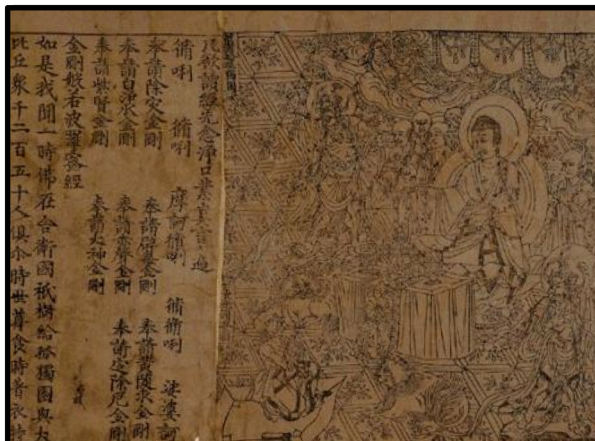 凡欲讀經先念淨口業真言一遍
脩唎 脩唎 摩訶脩唎 脩脩唎 娑婆訶
奉請除灾金剛 奉請辟毒金剛 奉請黄随求金剛
奉請白淨水金剛 奉請赤聲金剛 奉請定除厄金剛
奉請紫賢金剛 奉請大神金剛
金剛般若波羅蜜經
如是我聞一時佛在舍衛國祇樹給孤獨園與大
比丘衆千二百五十人俱尒時世尊食時著衣持